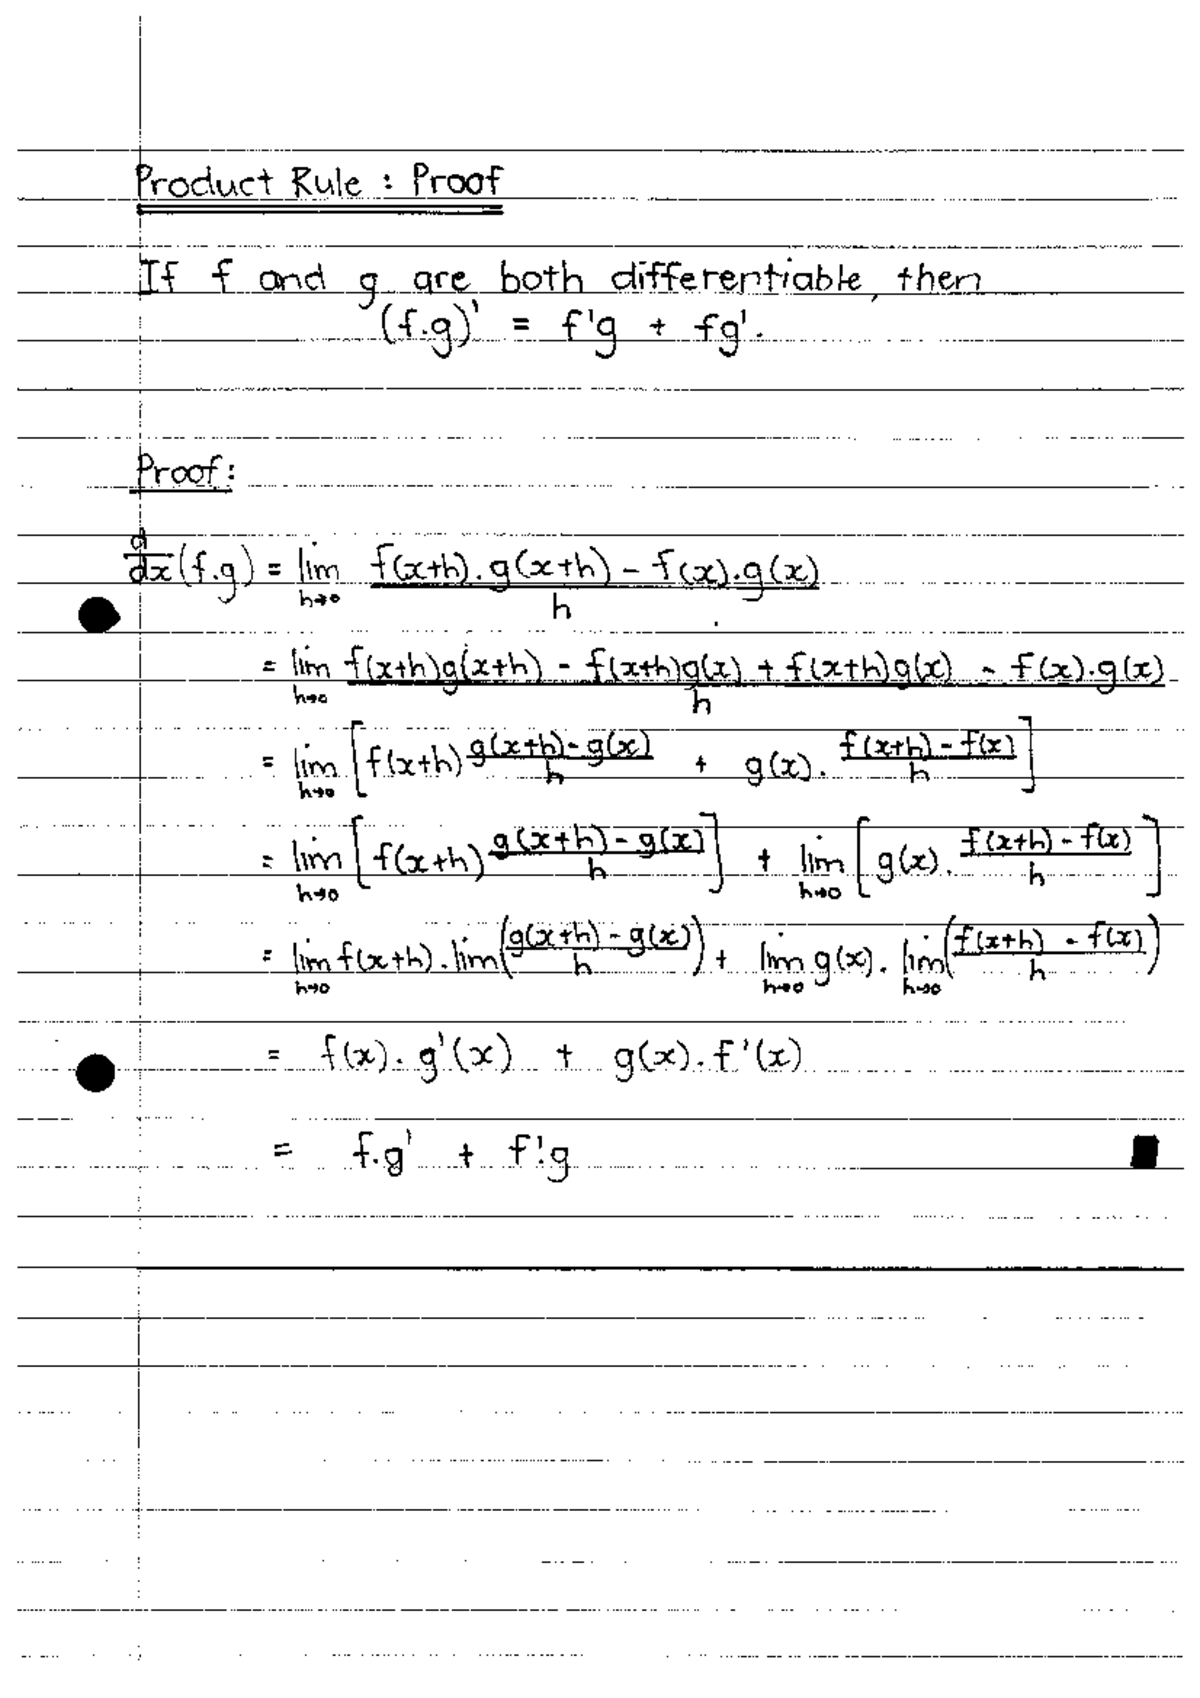 Product Rule : Proof
If f and g are both differentiable, then
(f.g)' = f'g + fg'.
Proof:
d/dx (f.g) = lim h→0 f(x+h).g(x+h) - f(x).g(x) / h
= lim h→0 f(x+h)g(x+h) - f(x+h)g(x) + f(x+h)g(x) - f(x).g(x) / h
= lim h→0 [f(x+h) g(x+h)-g(x) / h + g(x). f(x+h)-f(x) / h]
= lim h→0 [f(x+h) g(x+h)-g(x) / h] + lim h→0 [g(x). f(x+h)-f(x) / h]
= lim h→0 f(x+h). lim (g(x+h)-g(x) / h) + lim h→0 g(x). lim h→0 (f(x+h)-f(x) / h)
= f(x). g'(x) + g(x). f'(x)
= f.g' + f'.g